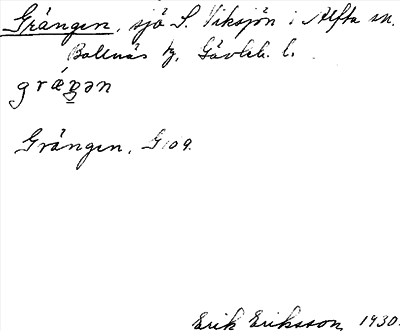 Grängen, sjö S. Viksjön i Alfta sn.
Bollnäs tg, Gävleb. l.
grǽŋən
Grängen, G109.
Erik Eriksson 1930.